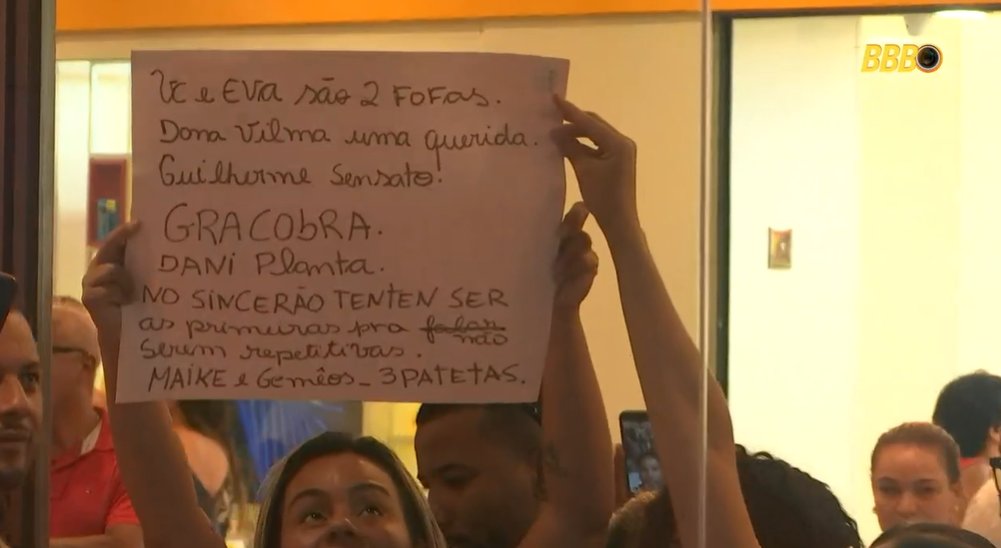 BBB
Vc e EVA são 2 FOFAS.
Dona Vilma uma querida.
Guilherme Sensato!
GRACObRA.
DANi Planta.
NO SINCERÃO TENTEN SER
as primeiras pra falar não
Serem repetitivas.
MAIKE e Gemêos_ 3 PATETAS.